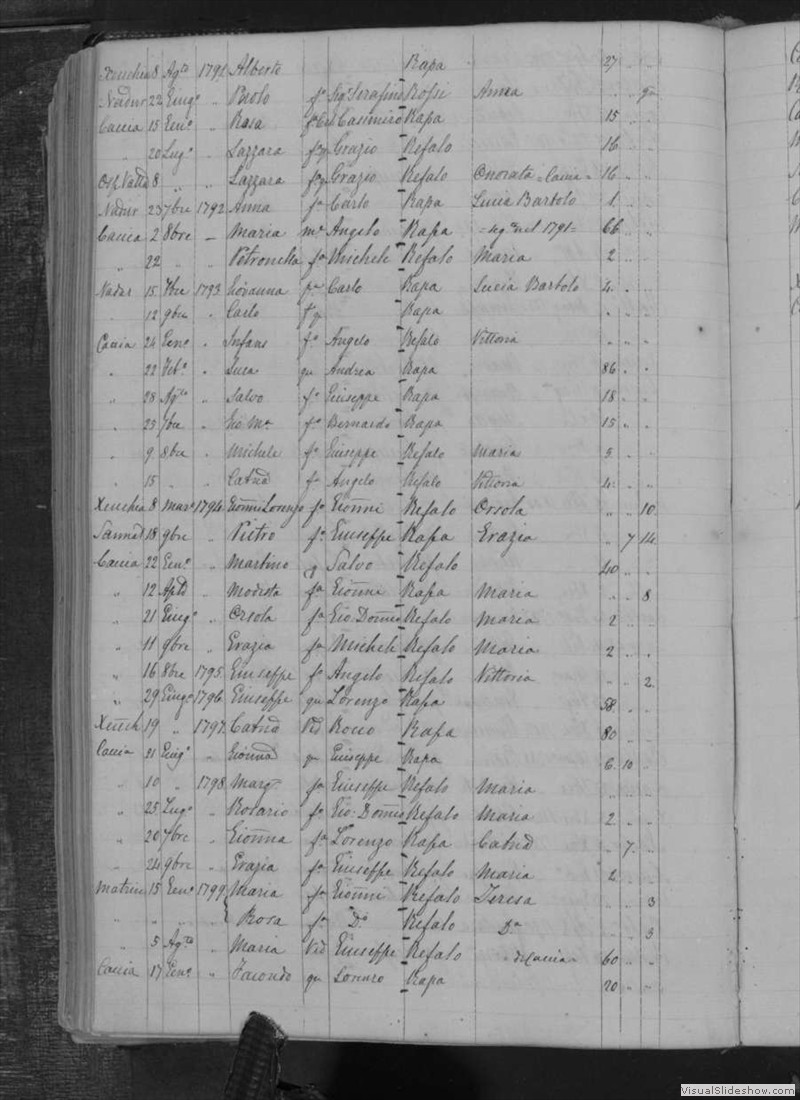 Xeuchia 8 Agto 1792 Alberto Rapa 27
Nadur 22 Giug° " Paolo fo Sigr Serafino Rossi Anna " " 9
Caccia 15 Gen° " Rosa Casimiro Rapa 15 " "
" 20 Lug° " Lazzara Grazio Refalo 16
8 " " Lazzara Grazio Refalo Onorata = Caccia = 16 " "
Nadur 23 7bre 1792 Anna fa Carlo Rapa Lucia Bartolo 1 " "
Caccia 2 8bre – Maria me Angelo Rapa 1791 = 66 " "
" 22 " " Petronella fa Michele Refalo Maria 2 " "
Nadur 15 7bre 1793 Giovanna fa Carlo Rapa Lucia Bartolo 4 " "
" 12 9bre " Carlo Rapa " " "
Caccia 24 Gen° " Infans fo Angelo Refalo Vittoria " " "
" 22 Feb° " Luca qu Andrea Rapa 86 " "
" 28 Agto " Salvo fo Giuseppe Rapa 18 " "
" 25 7bre " Gio Ma fo Bernardo Rapa 15 " "
" 9 8bre " Michele fo Giuseppe Refalo Maria 5 " "
" 15 " " Catna fa Angelo Refalo Vittoria 4 " "
Xeuchia 8 Mar° 1794 Gionni Lorenzo fo Gionni Refalo Orsola " " 10
Sannat 18 9bre " Pietro fo Giuseppe Rapa Grazia " 7 14
Caccia 22 Gen° " Martino q Salvo Refalo 40 " "
" 12 Aple " Modesta fa Gionni Rapa Maria " " 8
" 21 Giug° " Orsola fa Gio: Domco Refalo Maria 2 " "
" 11 9bre " Grazia fa Michele Refalo Maria 2 " "
" 16 8bre 1795 Giuseppe fo Angelo Refalo Vittoria " " 2
" 29 Giug° 1796 Giuseppe qu Lorenzo Rapa 58 " "
Xeuch 19 " 1797 Catna Vid Rocco Rapa 80 " "
Caccia 21 Giug° " Gionna qu Giuseppe Rapa 6 10 "
" 10 " 1798 Marg fa Giuseppe Refalo Maria " " "
" 25 Lug° " Rosario fo Gio: Domco Refalo Maria 2 " "
" 20 7bre " Gionna fa Lorenzo Rapa Catna " 7 "
" 24 9bre " Grazia fa Giuseppe Refalo Maria 2 " "
Matrice 15 Gen° 1799 Maria fa Gionni Refalo Teresa " " 3
" " " Rosa fa Do Refalo Da " " 3
" 5 Agto " Maria Vid Giuseppe Refalo Caccia 60 " "
Caccia 17 Gen° " qu Lorenzo Rapa 20 " "
VisualSlideshow.com